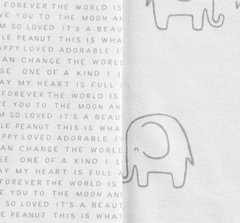 FOREVER THE WORLD IS
VE YOU TO THE MOON AN
M SO LOVED IT'S A BEAU
LE PEANUT THIS IS WHA
APPY LOVED ADORABLE I
AN CHANGE THE WORLD
SE ONE OF A KIND I L
AY MY HEART IS FULL A
FOREVER THE WORLD IS
VE YOU TO THE MOON AN
M SO LOVED IT'S A BEAU
LE PEANUT THIS IS WHAT
APPY LOVED ADORABLE I
AN CHANGE THE WORLD I
SE ONE OF A KIND I L
AY MY HEART IS FULL A
FOREVER THE WORLD IS B
VE YOU TO THE MOON AND
SO LOVED IT'S A BEAUT
LE PEANUT THIS IS WHAT